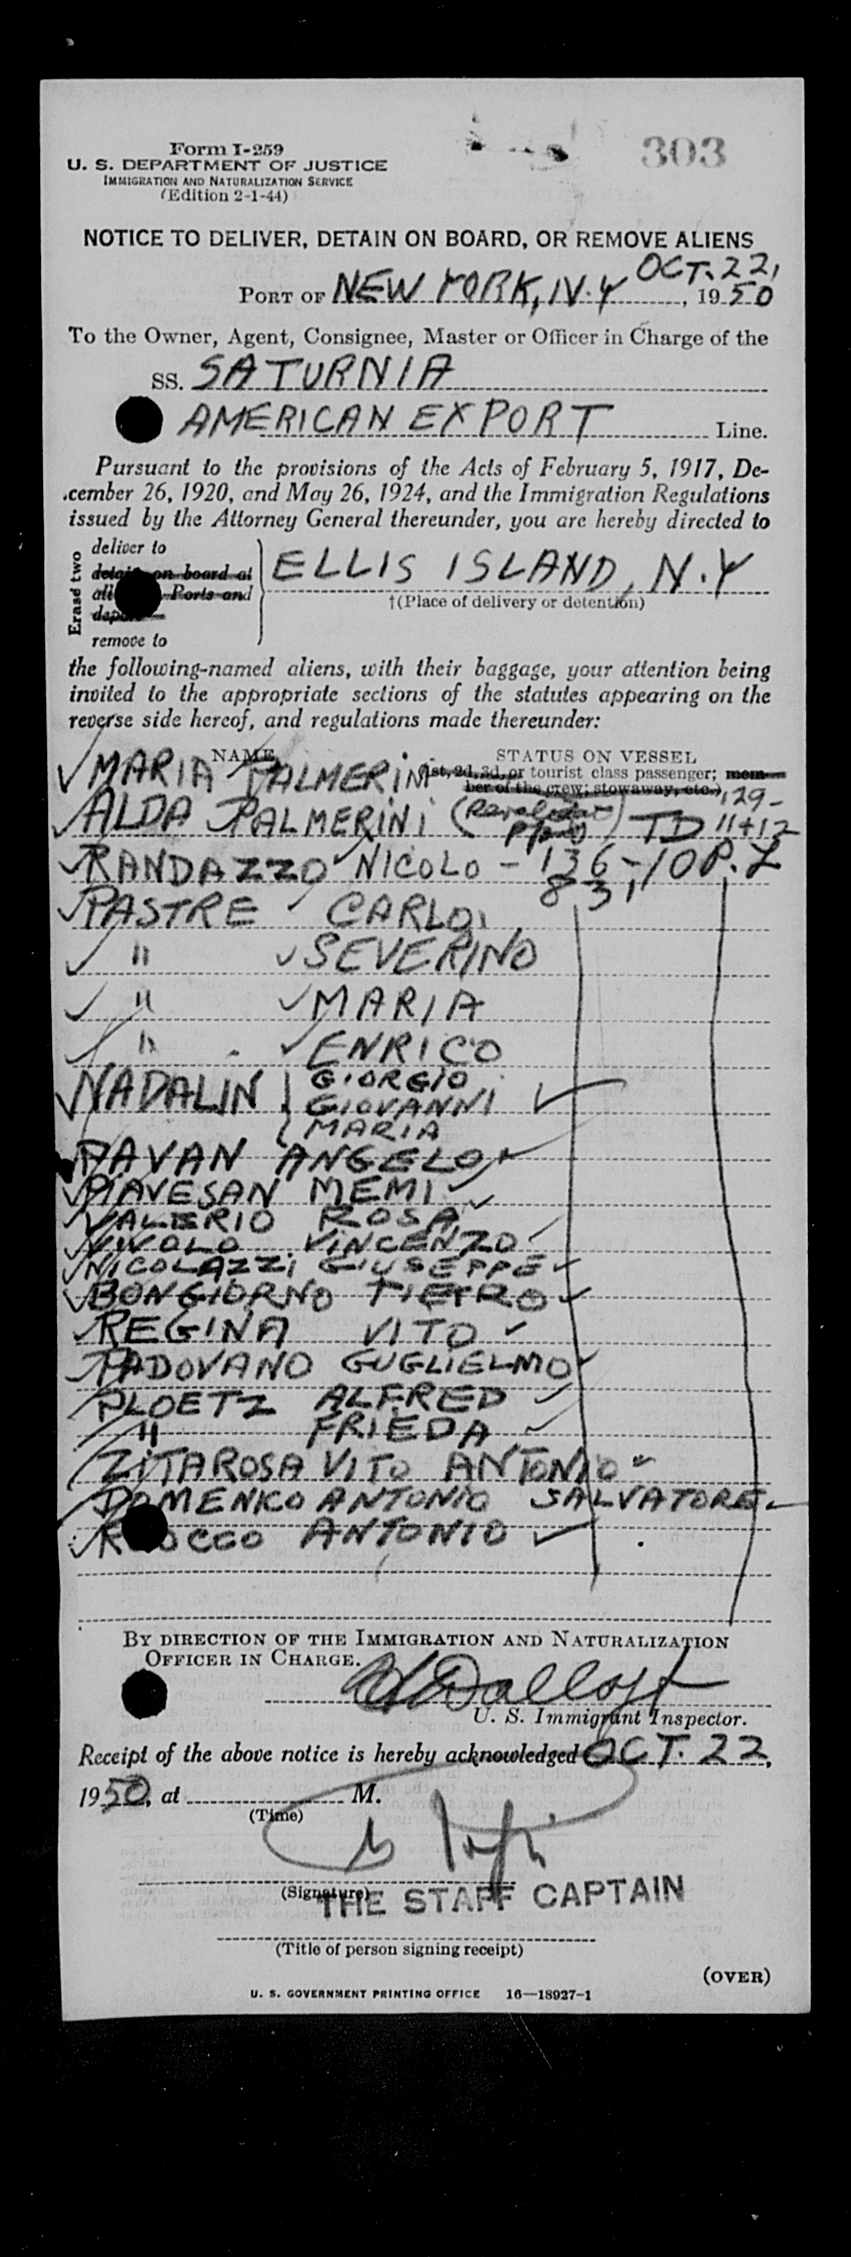 303
Form I-259
U. S. DEPARTMENT OF JUSTICE
IMMIGRATION AND NATURALIZATION SERVICE
(Edition 2-1-44)
NOTICE TO DELIVER, DETAIN ON BOARD, OR REMOVE ALIENS
OCT. 22,
PORT OF NEW YORK, N.Y, 1950
To the Owner, Agent, Consignee, Master or Officer in Charge of the
SS. SATURNIA
AMERICAN EXPORT Line.
Pursuant to the provisions of the Acts of February 5, 1917, De-
cember 26, 1920, and May 26, 1924, and the Immigration Regulations
issued by the Attorney General thereunder, you are hereby directed to
Erase two
deliver to
detain on board at
Ports and
remove to
ELLIS ISLAND, N.Y
†(Place of delivery or detention)
the following-named aliens, with their baggage, your attention being
invited to the appropriate sections of the statutes appearing on the
reverse side hereof, and regulations made thereunder:
NAME STATUS ON VESSEL
MARIA PALMERINI (1st, 2d, 3d, or tourist class passenger; mem-
ber of the crew; stowaway, etc.) 129-
ALDA PALMERINI TD 11+12
RANDAZZO NICOLO - 136-10 P.L
831
PASTRE CARLO
" SEVERINO
" MARIA
" ENRICO
NADALIN { GIORGIO
GIOVANNI
MARIA
PAVAN ANGELO
PIAVESAN MEMI
VALERIO ROSA
VIVOLO VINCENZO
NICOLAZZI GIUSEPPE
BONGIORNO PIETRO
REGINA VITO
PADOVANO GUGLIELMO
PLOETZ ALFRED
" FRIEDA
ZITAROSA VITO ANTONIO
DOMENICO ANTONIO SALVATORE
ROCCO ANTONIO
BY DIRECTION OF THE IMMIGRATION AND NATURALIZATION
OFFICER IN CHARGE.
U. S. Immigrant Inspector.
Receipt of the above notice is hereby acknowledged OCT. 22,
1950, at M.
(Time)
(Signature)
THE STAFF CAPTAIN
(Title of person signing receipt)
(OVER)
U. S. GOVERNMENT PRINTING OFFICE 16—18927-1